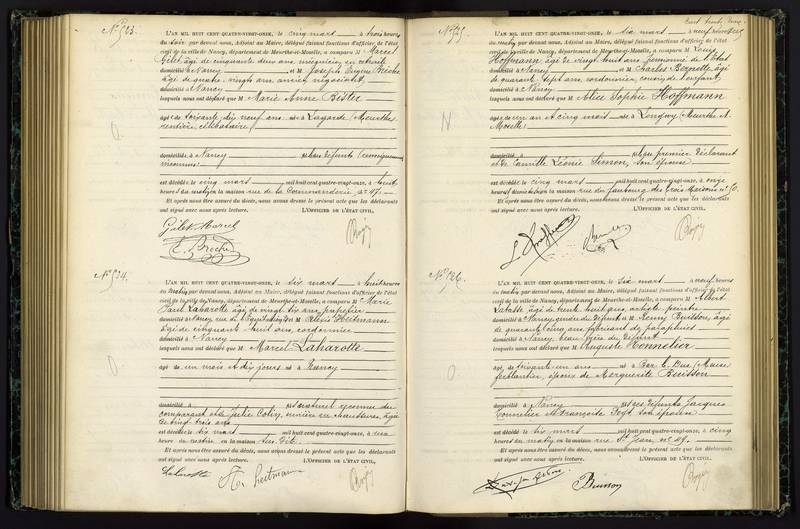 N° 523.
L'AN MIL HUIT CENT QUATRE-VINGT-ONZE, le cinq mars à trois heures
du soir par devant nous, Adjoint au Maire, délégué faisant fonctions d'officier de l'état
civil de la ville de Nancy, département de Meurthe-et-Moselle, a comparu M Marcel
Gilet, âgé de cinquante deux ans, négociant en retraite
domicilié à Nancy et M Joseph Eugène Broche
âgé de quatre vingts ans, ancien négociant,
domicilié à Nancy
lesquels nous ont déclaré que M Marie Anne Bister
âgée de soixante dix neuf ans née à Lagarde (Meurthe)
rentière célibataire,
domiciliée à Nancy
inconnus)
est décédée le cinq mars mil huit cent quatre-vingt-onze, à huit
heures du matin en la maison rue de la Commanderie n° 47.
Et après nous être assuré du décès, nous avons dressé le présent acte que les déclarants
ont signé avec nous après lecture. L'OFFICIER DE L'ÉTAT CIVIL,
Gilet Marcel
E. Broche
N° 524.
L'AN MIL HUIT CENT QUATRE-VINGT-ONZE, le six mars à huit heures
du matin par devant nous, Adjoint au Maire, délégué faisant fonctions d'officier de l'état
civil de la ville de Nancy, département de Meurthe-et-Moselle, a comparu M Marie
Paul Laharotte âgé de vingt six ans, papetier
domicilié à Nancy, rue et M Alexis Heitmann
âgé de cinquante huit ans, cordonnier
domicilié à Nancy
lesquels nous ont déclaré que M Marcel Laharotte
âgé de un mois et dix jours né à Nancy
domicilié à est naturel reconnu du
comparant et de Julie Colin, ouvrière en chaussures, âgée
de vingt trois ans
est décédé le six mars mil huit cent quatre-vingt-onze, à une
heure du matin en la maison sus dite.
Et après nous être assuré du décès, nous avons dressé le présent acte que les déclarants
ont signé avec nous après lecture. L'OFFICIER DE L'ÉTAT CIVIL,
Laharotte
Heitmann
N° 525
L'AN MIL HUIT CENT QUATRE-VINGT-ONZE, le six mars à neuf heures
du matin par devant nous, Adjoint au Maire, délégué faisant fonctions d'officier de l'état
civil de la ville de Nancy, département de Meurthe-et-Moselle, a comparu M Louis
Hoffmann âgé de vingt huit ans, pensionné de l'Etat
domicilié à Nancy et M Charles Bernotte âgé
de quarante sept ans, cordonnier, cousin de l'enfant,
domicilié à Nancy
lesquels nous ont déclaré que M Alice Sophie Hoffmann
âgée de un an et cinq mois née à Longwy (Meurthe et
Moselle)
domiciliée à Nancy est du premier déclarant
et de Camille Léonie Simon, son épouse
est décédée le cinq mars mil huit cent quatre-vingt-onze, à onze
heures du en la maison rue du faubourg des Trois Maisons n°
Et après nous être assuré du décès, nous avons dressé le présent acte que les déclarants
ont signé avec nous après lecture. L'OFFICIER DE L'ÉTAT CIVIL,
L. Hoffmann
N° 526.
L'AN MIL HUIT CENT QUATRE-VINGT-ONZE, le six mars à neuf heures
du matin par devant nous, Adjoint au Maire, délégué faisant fonctions d'officier de l'état
civil de la ville de Nancy, département de Meurthe-et-Moselle, a comparu M Albert
âgé de trente huit ans, artiste peintre
domicilié à Nancy, gendre du défunt et M Buisson, âgé
de quarante cinq ans, fabricant de parapluies
domicilié à Nancy, beau frère du défunt
lesquels nous ont déclaré que M Auguste Tonnelier
âgé de soixante un ans né à Bar le Duc (Meuse)
ferblantier, époux de Marguerite Buisson
domicilié à Nancy défunts Jacques
Tonnelier et Françoise son épouse
est décédé le six mars mil huit cent quatre-vingt-onze, à cinq
heures du matin en la maison rue St Jean, n° 49.
Et après nous être assuré du décès, nous avons dressé le présent acte que les déclarants
ont signé avec nous après lecture. L'OFFICIER DE L'ÉTAT CIVIL,
Buisson